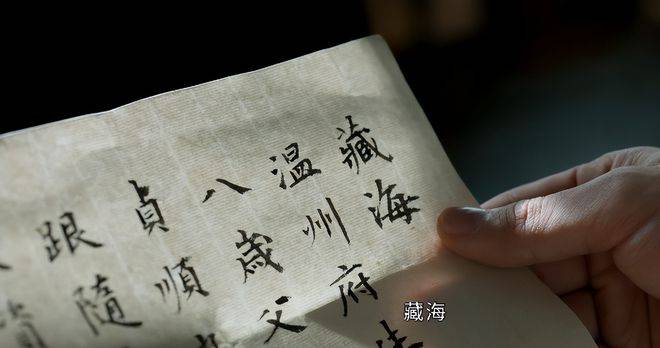 藏海
溫州府
八歲父
貞順
跟隨
藏海